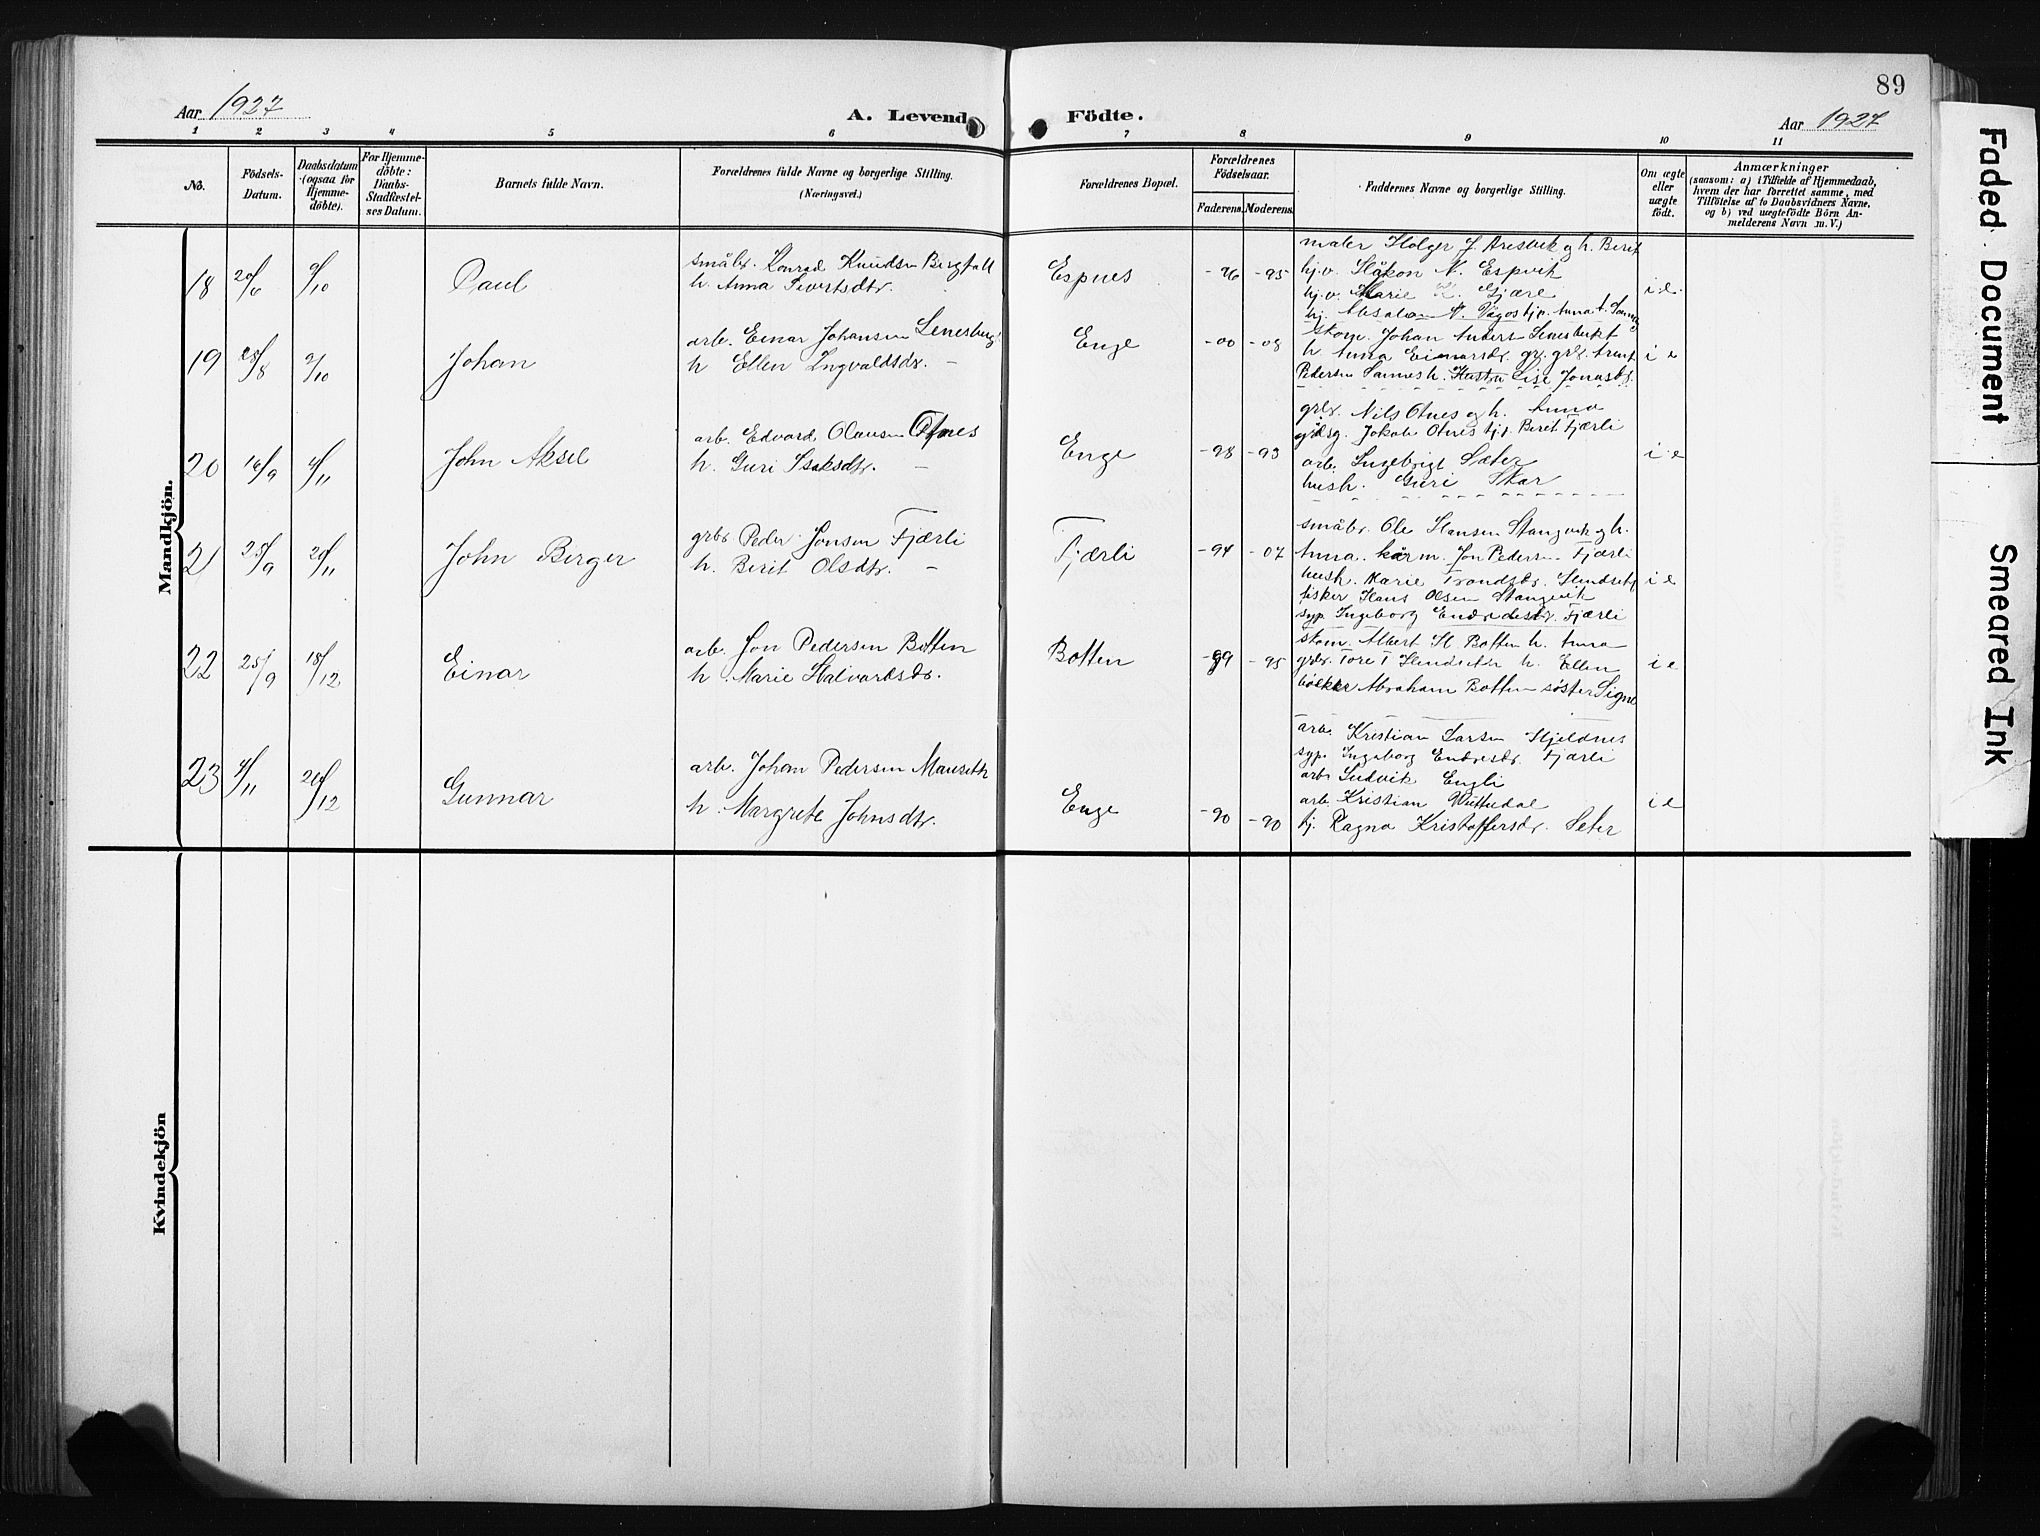 89
Aar 1927
A. Levende Födte.
Aar 1927
1 2 3 4 5 6 7 8 9 10 11
No.
Födsels-Datum.
Daabsdatum (ogsaa for Hjemme-döbte).
For Hjemme-döbte: Daabs-Stadfæstel-ses Datum.
Barnets fulde Navn.
Forældrenes fulde Navne og borgerlige Stilling.
(Næringsvei.)
Forældrenes Bopæl.
Forældrenes Födselsaar.
Faderens. Moderens.
Faddernes Navne og borgerlige Stilling.
Om ægte eller uægte födt.
Anmærkninger
(saasom: a) i Tilfælde af Hjemmedaab,
hvem der har forrettet samme, med
Tilföielse af to Daabsvidners Navne,
og b) ved uægtefödte Börn An-
melderens Navn m. V.)
Mandkjön.
18 20/6 9/10 Paul
småbr. Konrad Knudsen Bergfall
h. Anna Sivertsdtr.
Espnes
-96 -95
maler Holger J. Aresvik og h. Berit
hj.v. Håkon N. Espvik
hj.v. Marie K. Gjære
hj. Absalon N. Vågos hj. Anna
i e.
19 28/8 9/10 Johan
arb. Einar Johansen
h Ellen Ingvaldsdr. -
Enge
-00 -08
skom. Johan Anders
h Anna Einarsdr. gr.
Pedersen Sannes h. Lise Jonasdr.
i e
20 16/9 4/11 John Aksel
arb. Edvard Olausen Otnes
h. Guri Isaksdtr. -
Enge
-98 -93
grbr. Nils Otnes og h. Anna
gdsg. Jakob Otnes hj. Berit Fjærli
arb. Ingebrigt Sæter
hush. Guri Skar
i e
21 25/9 20/11 John Birger
grbr Peder Jonsen Fjærli
h. Berit Olsdtr. -
Fjærli
-94 -07
småbr. Ole Hansen Stangvik og h.
Anna. kårm. Jon Pedersen Fjærli
hush. Marie Trondsdr. Hendset
fisker Hans Olsen Stangvik
syp. Ingeborg Endresdr. Fjærli
i e
22 25/9 18/12 Einar
arb. Jon Pedersen Botten
h. Marie Halvardsdr.
Botten
-99 -95
skom. Albert H. Botten h. Anna
grbr. Tore T Hendset h. Ellen
bøkker Abraham Botten søster Signe
i e
23 4/11 26/12 Gunnar
arb. Johan Pedersen Mauseth
h. Margrete Johnsdtr.
Enge
-90 -90
arb. Kristian Larsen Hjeldnes
syp. Ingeborg Endresdr. Fjærli
arb Ludvik Engli
arb. Kristian Wuttudal
hj. Ragna Kristoffersdr. Seter
i e
Kvindekjön
Faded Document
Smeared Ink